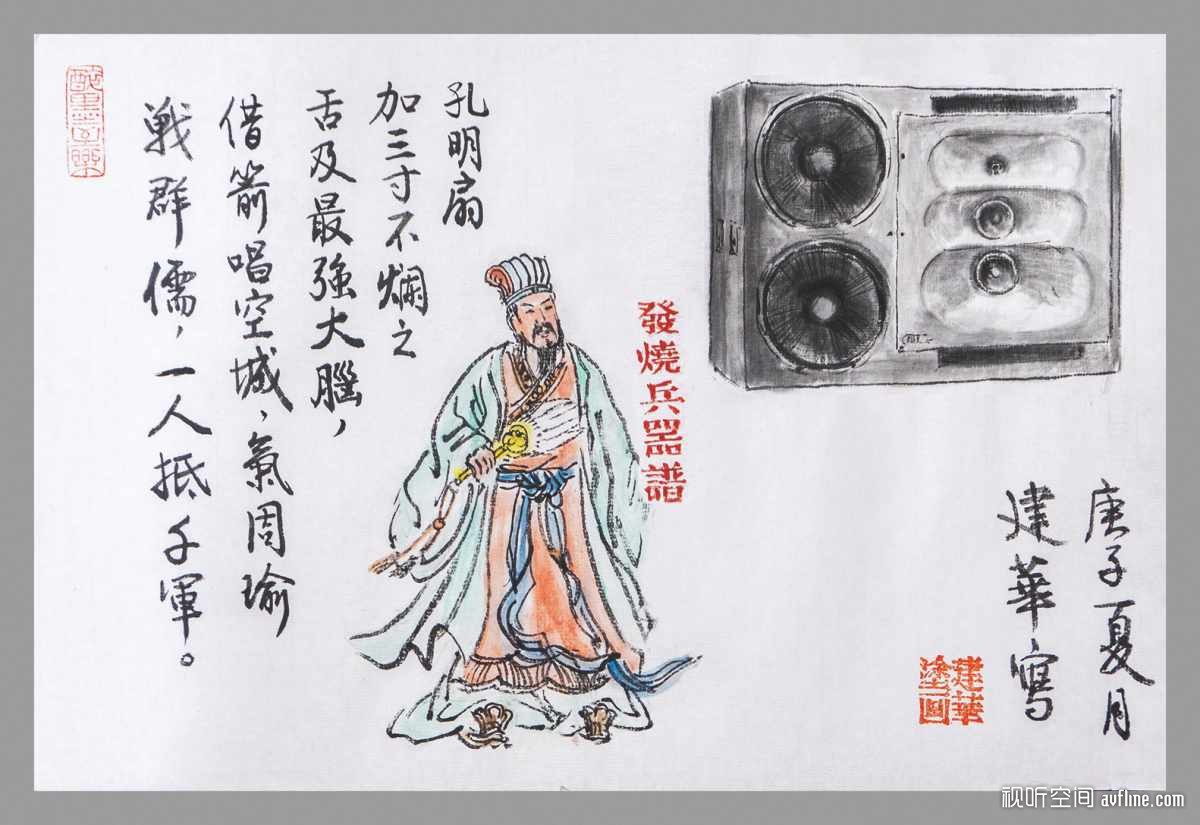 孔明扇
加三寸不爛之
舌及最強大腦，
借箭唱空城，氣周瑜
戰群儒，一人抵千軍。
發燒兵器譜
庚子夏月
建華寫
建華
视听空间 avfline.com